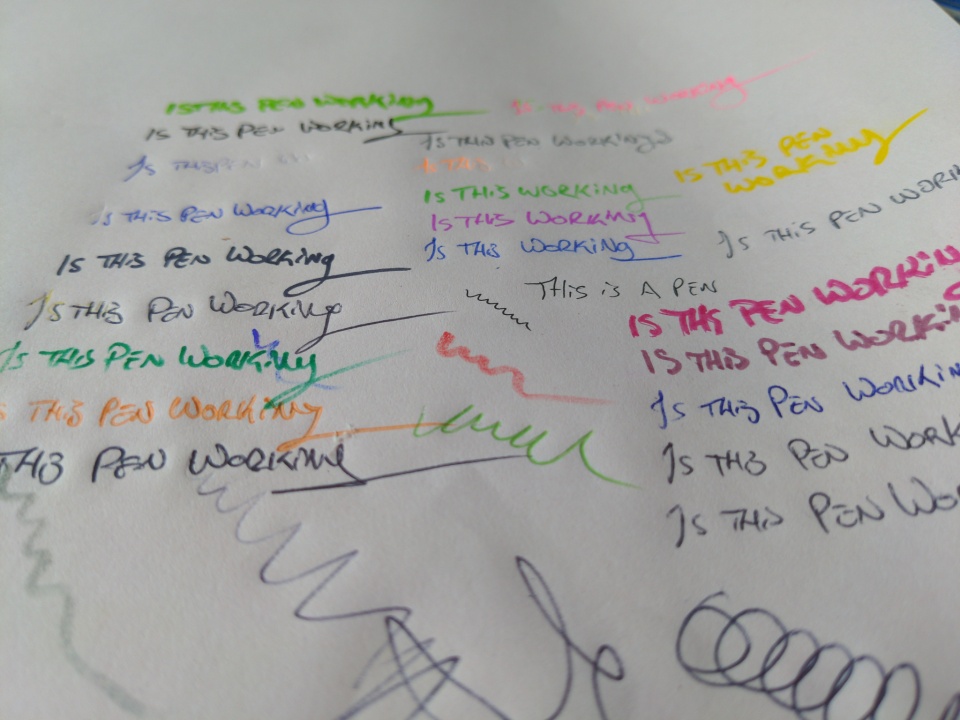 IS THIS PEN WORKING
IS THIS PEN WORKING
IS THIS PEN WORKING
IS THIS PEN WORKING
IS THIS PEN
IS THIS
IS THIS PEN WORKING
IS THIS WORKING
IS THIS PEN WORKING
IS THIS WORKING
IS THIS PEN WORK
IS THIS WORKING
IS THIS PEN WORKING
THIS IS A PEN
IS THIS PEN WORKING
IS THIS PEN WORKIN
IS THIS PEN WORKING
IS THIS PEN WORKIN
IS THIS PEN WORKIN
S THIS PEN WORKING
IS THIS PEN WORK
THIS PEN WORKING
IS THIS PEN WO